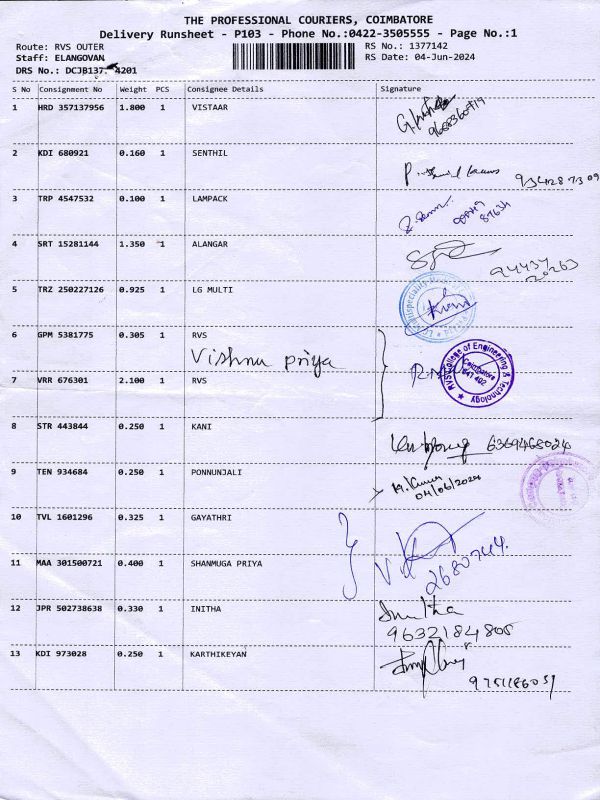 THE PROFESSIONAL COURIERS, COIMBATORE
Delivery Runsheet - P103 - Phone No.:0422-3505555 - Page No.:1
Route: RVS OUTER
Staff: ELANGOVAN
DRS No.: DCJB137. 4201
RS No.: 1377142
RS Date: 04-Jun-2024
S No Consignment No Weight PCS Consignee Details Signature
1 HRD 357137956 1.800 1 VISTAAR
2 KDI 680921 0.160 1 SENTHIL
3 TRP 4547532 0.100 1 LAMPACK
4 SRT 15281144 1.350 1 ALANGAR
94437
20263
5 TRZ 250227126 0.925 1 LG MULTI
6 GPM 5381775 0.305 1 RVS
Vishnu priya
RVS College of Engineering & Technology
Coimbatore
641 402
7 VRR 676301 2.100 1 RVS
8 STR 443844 0.250 1 KANI
6369468024
9 TEN 934684 0.250 1 PONNUNJALI
M. Kumar
04/06/2024
10 TVL 1601296 0.325 1 GAYATHRI
11 MAA 301500721 0.400 1 SHANMUGA PRIYA
2680744.
12 JPR 502738638 0.330 1 INITHA
9632184805
13 KDI 973028 0.250 1 KARTHIKEYAN